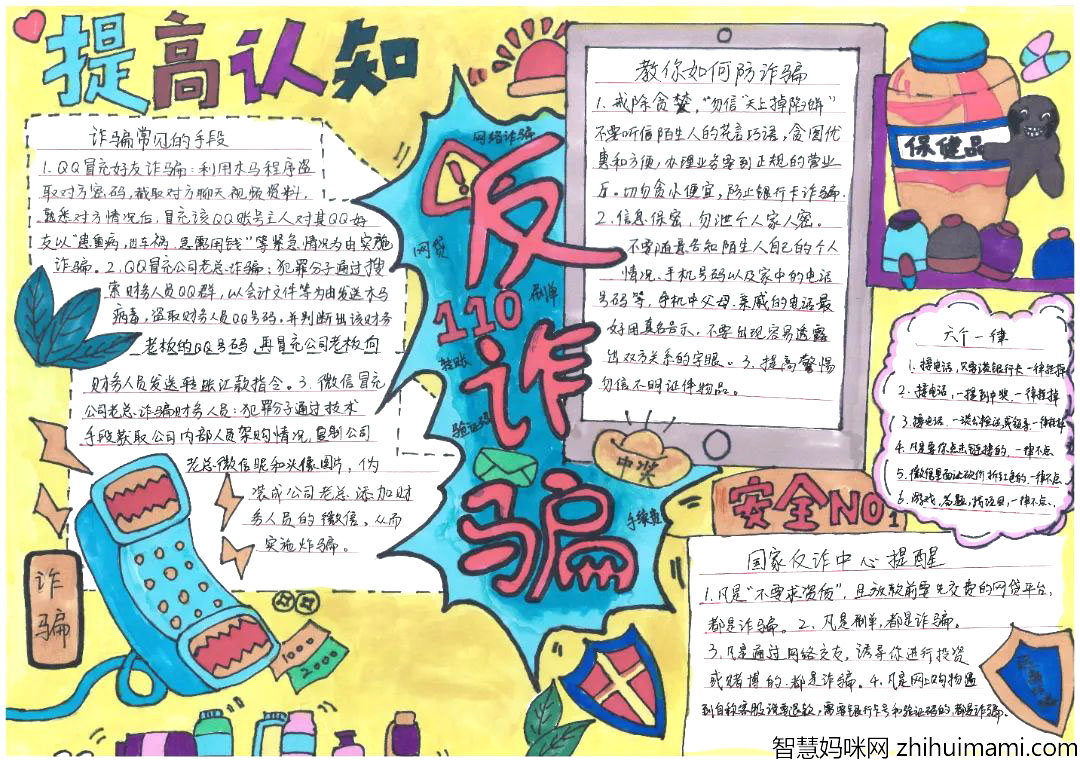 提高认知
诈骗常见的手段
1.QQ冒充好友诈骗：利用木马程序盗
取对方密码，截取对方聊天视频资料，
熟悉对方情况后，冒充该QQ账号主人对其QQ好
友以"患重病，出车祸，急需用钱"等紧急情况为由实施
诈骗。2.QQ冒充公司老总诈骗：犯罪分子通过搜
索财务人员QQ群，以会计文件等为由发送木马
病毒，盗取财务人员QQ号码，并判断出该财务
老板的QQ号码，再冒充公司老板向
财务人员发送转账汇款指令。3.微信冒充
公司老总诈骗财务人员：犯罪分子通过技术
手段获取公司内部人员架购情况，复制公司
老总微信昵和头像图片，伪
装成公司老总添加财
务人员的微信，从而
实施炸骗。
诈
骗
1000
2000
网络诈骗
反
网贷
110
刷单
诈
转账
验证码
骗
手续费
教你如何防诈骗
1.戒除贪婪，"勿信"天上掉陷饼"
不要听信陌生人的花言巧语，贪图优
惠和方便，办理业务要到正规的营业
厅。切勿贪小便宜，防止银行卡诈骗.
2.信息保密，勿泄个人家人密。
不要随意告知陌生人自己的个人
情况、手机号码以及家中的电话
号码等，手机中父母.亲戚的电话最
好用真名显示，不要出现容易透露
出双方关系的字眼。3.提高警惕
勿信不明证件物品。
中奖
保健品
六个一律
1.接电话，只要谈银行卡一律挂掉
2.接电话，一提到中奖，一律挂掉
3.接电话，一谈公检法
一律挂掉
4.凡是要你点击链接的，一律不点
5.微信里面
一律不点
6.游戏、
一律不点.
安全NO1
国家反诈中心提醒
1.凡是"不要求资质"，且放款前要先交费的网贷平台，
都是诈骗。2、凡是刷单，都是诈骗。
3.凡是通过网络交友，诱导你进行投资
或赌博的.都是诈骗。4.凡是网上购物遇
到自称客服说要退款，需要银行卡号和验证码的都是诈骗.
智慧妈咪网 zhihuimami.com